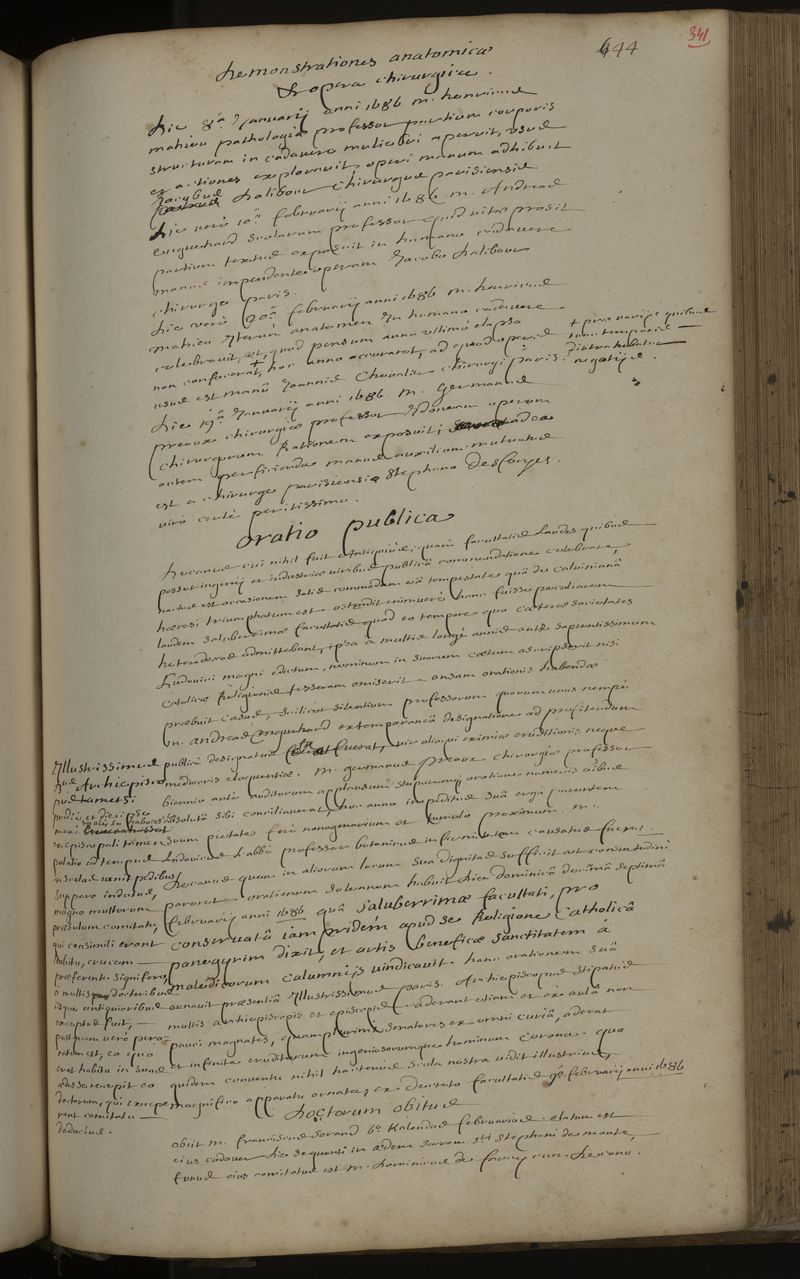 341
644
Demonstrationes anatomicæ
& opera chirurgica.
Die 8.ª Januarij anni 1686 m. henricus
mahieu pathologiæ professor partium corporis
structuram in cadavere muliebri aperuit, usus
et actiones exploravit, operi manum adhibuit
Jacobus Dalibour chirurgus parisiensis.
Die verò 10.ª februarij anni 1686 m. Andreas
Enguehard scolarum professor quid vitæ prosit
partium textus exposuit in humano cadavere
manus impendente operam Jacobo Dalibour
chirurgo paris.
Die verò 20.ª februarij anni 1686 m. henricus
mahieu iterum anatomen in humano cadavere
celebravit, et, quod pensum anno ultimo elapso
non confecerat, + hoc anno accuravit, ad quod opus
usus est manu Joannis Chevalier chirurgi paris.
+ pro varijs quibus
tunc temporis
distrahebatur
negotijs.
Die 19.ª Januarij anni 1686. m. Germanus
preaux chirurgiæ professor idoneam operum
chirurgicorum rationem exposuit; ad ea
autem perficienda manus auxilium mutuatus
est a chirurgo parisiensi Stephano Desforges.
viro certè peritissimo.
oratio publica
Decanus cui nihil fuit antiquius, quàm facultatis laudes quibus
posset ingenij et industriæ viribus publicâ commendatione celebrare,
nactus est occasionem satis commodam eâ tempestate quâ de calvinianâ
hæresi triumphatum est. ostendit enimverò hanc fuisse peculiarem
laudem saluberrimæ facultatis quod eo tempore quo cæteræ societates
heterodoxos admittebant, ipsa a multis longè annis ante sapientissimum
Ludovici magni edictum, neminem in suorum cœtum adscripserit nisi
catolicæ Religionis tesseram emiserit. ansam orationis habendæ
præbuit casus, scilicet silentium professorum quorum unus nempè
m. Andreas Enguehard extemporaneâ designatione ad profitendum
publicè designatus fuerat, vir alioqui eximiæ eruditionis neque
mediocris eloquentiæ. m. germanus preaux chirurgiæ professor
biennio antè auditorum applausum stupendæ orationis numeris omnibus
absolutâ sibi conciliaverat, hoc anno impeditus suâ ergà parentem
suum pietate ferè nonagenarium et tumulo proximum. m.
Ludovicus Labbé professor botanicus infirmitatem causatus fuerat.
Decanus quem in aliorum locum sua dignitas sufficit ut consuetudini
pareret. orationem solemnem habuit die dominicâ decimâ septimâ
februarij anni 1686 quâ saluberrimæ facultati, pro
conservatâ iam pridem apud se Religione Catholicâ
panegyrim dixit, et artis beneficæ sanctitatem à
maledicorum calumnijs vindicavit. hanc orationem suâ
ornavit præsentiâ Illustrissimus paris. Archiepiscopus stipatus
multis archiepiscopis et episcopis. aderant etiam et ex aulâ non
pauci magnates, quamplurimi senatores ex omni curiâ, aderat
et infinita eruditorum ingeniosorumque hominum corona. quo
quidem conventu nihil hactenus scola nostra vidit illustrius,
magnifico apparatu ornata, ex decreto facultatis 9.ª februarij anni 1686
Illustrissimus
Archiepisco
pus tametsi
pridie et die ipso
ex episcopali tamen
palatio ad tempus
in scolas venit pedibus
suppari indutus,
magno multorum
præsulum comitatu,
qui consimili erant
habitu, crucem
præferente signifero,
à multis doctoribus
iisque antiquioribus
exceptus fuit,
postquam verò pero-
ratum est, eo quo
erat habitu in suas
ædes se recepit eo
doctorum, qui exceper
rant comitatu
deductus.
Doctorum obitus
obiit m. franciscus Dorand 6.º Kalendas februarias. elatum est
eius cadaver die sequenti in ædem sacram s.ti Stephani de monte,
funus eius comitatus est m. Dominicus de farcy cum Decano.